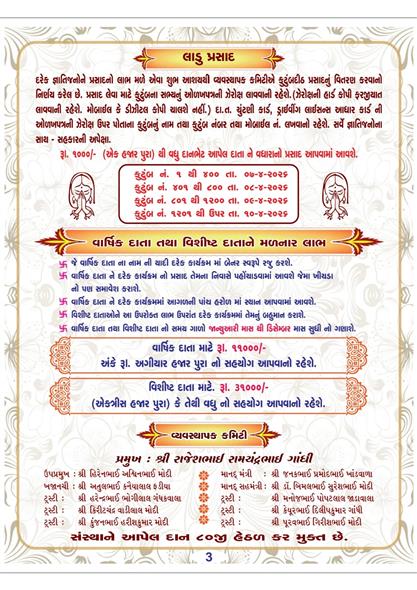 લાડુ પ્રસાદ
દરેક જ્ઞાતિજનોને પ્રસાદનો લાભ મળે એવા શુભ આશયથી વ્યવસ્થાપક કમિટીએ કુટુંબદીઠ પ્રસાદનું વિતરણ કરવાનો
નિર્ણય કરેલ છે. પ્રસાદ લેવા માટે કુટુંબના સભ્યનું ઓળખપત્રની ઝેરોક્ષ લાવવાની રહેશે. (ઝેરોક્ષની હાર્ડ કોપી ફરજીયાત
લાવવાની રહેશે. મોબાઈલ કે ડીઝીટલ કોપી ચાલશે નહીં.) દા.ત. ચુંટણી કાર્ડ, ડ્રાઈવીંગ લાઈસન્સ આધાર કાર્ડ ની
ઓળખપત્રની ઝેરોક્ષ ઉપર પોતાના કુટુંબનું નામ તથા કુટુંબ નંબર તથા મોબાઈલ નં. લખવાનો રહેશે. સર્વે જ્ઞાતિજનોના
સાથ - સહકારની અપેક્ષા.
રૂા. ૧૦૦૦/- (એક હજાર પુરા) થી વધુ દાનભેટ આપેલ દાતા ને વધારાનો પ્રસાદ આપવામાં આવશે.
કુટુંબ નં. ૧ થી ૪૦૦ તા. ૦૭-૪-૨૦૨૬
કુટુંબ નં. ૪૦૧ થી ૮૦૦ તા. ૦૮-૪-૨૦૨૬
કુટુંબ નં. ૮૦૧ થી ૧૨૦૦ તા. ૦૯-૪-૨૦૨૬
કુટુંબ નં. ૧૨૦૧ થી ઉપર તા. ૧૦-૪-૨૦૨૬
વાર્ષિક દાતા તથા વિશીષ્ટ દાતાને મળનાર લાભ
જે વાર્ષિક દાતા ના નામ ની યાદી દરેક કાર્યક્રમ માં બેનર સ્વરૂપે રજુ કરશે.
વાર્ષિક દાતા ને દરેક કાર્યક્રમ નો પ્રસાદ તેમના નિવાસે પહોંચાડવામાં આવશે જેમા ખીચડા
નો પણ સમાવેશ કરાશે.
વાર્ષિક દાતા ને દરેક કાર્યક્રમમાં આગળની પાંચ હરોળ માં સ્થાન આપવામાં આવશે.
વિશીષ્ટ દાતાઓને આ ઉપરોક્ત લાભ ઉપરાંત દરેક કાર્યક્રમમાં તેમનું બહુમાન કરાશે.
વાર્ષિક દાતા તથા વિશીષ્ટ દાતા નો સમય ગાળો જાન્યુઆરી માસ થી ડિસેમ્બર માસ સુધી નો ગણાશે.
વાર્ષિક દાતા માટે રૂા. ૧૧૦૦૦/-
અંકે રૂા. અગીયાર હજાર પુરા નો સહયોગ આપવાનો રહેશે.
વિશીષ્ટ દાતા માટે. રૂા. ૩૧૦૦૦/-
(એકત્રીસ હજાર પુરા) કે તેથી વધુ નો સહયોગ આપવાનો રહેશે.
વ્યવસ્થાપક કમિટી
પ્રમુખ : શ્રી રાજેશભાઈ રામચંદ્રભાઈ ગાંધી
ઉપપ્રમુખ : શ્રી હિરેનભાઈ અશ્વિનભાઈ મોદી
માનદ્ મંત્રી : શ્રી જનકભાઈ પ્રમોદભાઈ ખાંડવાળા
ખજાનચી : શ્રી અતુલભાઈ કનૈયાલાલ કડીવા
માનદ્ સહમંત્રી : શ્રી ડૉ. બિમલભાઈ સુરેશભાઈ મોદી
ટ્રસ્ટી : શ્રી હરેન્દ્રભાઈ ભોગીલાલ ચંપકવાલા
ટ્રસ્ટી : શ્રી મનોજભાઈ પોપટલાલ જાડાવાલા
ટ્રસ્ટી : શ્રી કિરીટચંદ્ર વાડીલાલ મોદી
ટ્રસ્ટી : શ્રી કેયુરભાઈ દિલીપકુમાર ગાંધી
ટ્રસ્ટી : શ્રી કુંજનભાઈ હરીશકુમાર મોદી
ટ્રસ્ટી : શ્રી પુરવભાઈ ગિરીશભાઈ મોદી
સંસ્થાને આપેલ દાન ૮૦જી હેઠળ કર મુક્ત છે.
3